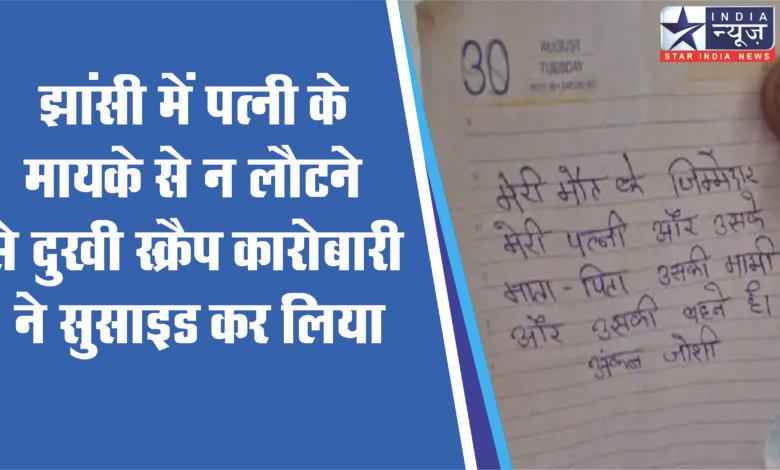 INDIA
न्यूज़
STAR INDIA NEWS
झांसी में पत्नी के
मायके से न लौटने
से दुखी स्क्रैप कारोबारी
ने सुसाइड कर लिया
30
AUGUST
TUESDAY
मेरी मौत के जिम्मेदार
मेरी पत्नी और उसके
माता-पिता उसकी मामी
और उसकी बहने है।
जोशी